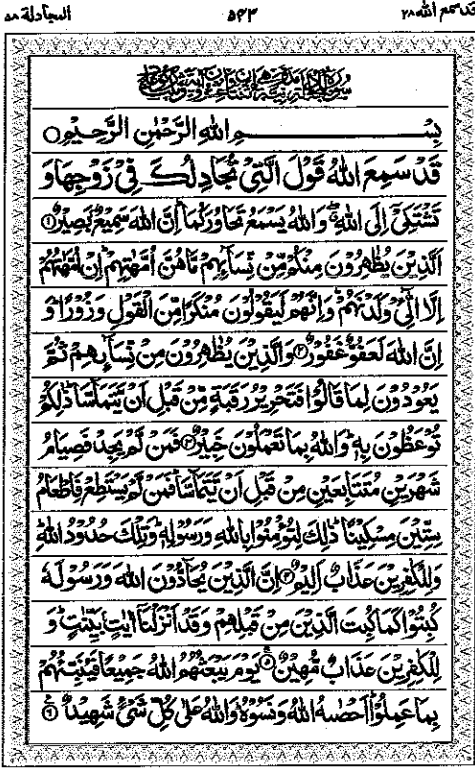 قد سمع الله ٢٨ ٥٤٤ المجادلة ٥٨
بِسْمِ اللهِ الرَّحْمٰنِ الرَّحِيْمِ
قَدْ سَمِعَ اللهُ قَوْلَ الَّتِيْ تُجَادِلُكَ فِيْ زَوْجِهَا وَ
تَشْتَكِيْٓ اِلَى اللهِ ۖ وَاللهُ يَسْمَعُ تَحَاوُرَكُمَا ؕ اِنَّ اللهَ سَمِيْعٌۢ بَصِيْرٌ ۝۱
اَلَّذِيْنَ يُظٰهِرُوْنَ مِنْكُمْ مِّنْ نِّسَآئِهِمْ مَّا هُنَّ اُمَّهٰتِهِمْ ؕ اِنْ اُمَّهٰتُهُمْ
اِلَّا الّٰٓئِيْ وَلَدْنَهُمْ ؕ وَاِنَّهُمْ لَيَقُوْلُوْنَ مُنْكَرًا مِّنَ الْقَوْلِ وَزُوْرًا ؕ وَ
اِنَّ اللهَ لَعَفُوٌّ غَفُوْرٌ ۝۲ وَالَّذِيْنَ يُظٰهِرُوْنَ مِنْ نِّسَآئِهِمْ ثُمَّ
يَعُوْدُوْنَ لِمَا قَالُوْا فَتَحْرِيْرُ رَقَبَةٍ مِّنْ قَبْلِ اَنْ يَّتَمَآسَّا ؕ ذٰلِكُمْ
تُوْعَظُوْنَ بِهٖ ؕ وَاللهُ بِمَا تَعْمَلُوْنَ خَبِيْرٌ ۝۳ فَمَنْ لَّمْ يَجِدْ فَصِيَامُ
شَهْرَيْنِ مُتَتَابِعَيْنِ مِنْ قَبْلِ اَنْ يَّتَمَآسَّا ۚ فَمَنْ لَّمْ يَسْتَطِعْ فَاِطْعَامُ
سِتِّيْنَ مِسْكِيْنًا ؕ ذٰلِكَ لِتُؤْمِنُوْا بِاللهِ وَرَسُوْلِهٖ ؕ وَتِلْكَ حُدُوْدُ اللهِ ؕ
وَلِلْكٰفِرِيْنَ عَذَابٌ اَلِيْمٌ ۝۴ اِنَّ الَّذِيْنَ يُحَآدُّوْنَ اللهَ وَرَسُوْلَهٗ
كُبِتُوْا كَمَا كُبِتَ الَّذِيْنَ مِنْ قَبْلِهِمْ وَقَدْ اَنْزَلْنَآ اٰيٰتٍۭ بَيِّنٰتٍ ؕ وَ
لِلْكٰفِرِيْنَ عَذَابٌ مُّهِيْنٌ ۝۵ يَوْمَ يَبْعَثُهُمُ اللهُ جَمِيْعًا فَيُنَبِّئُهُمْ
بِمَا عَمِلُوْا ؕ اَحْصٰىهُ اللهُ وَنَسُوْهُ ؕ وَاللهُ عَلٰى كُلِّ شَيْءٍ شَهِيْدٌ ۝۶